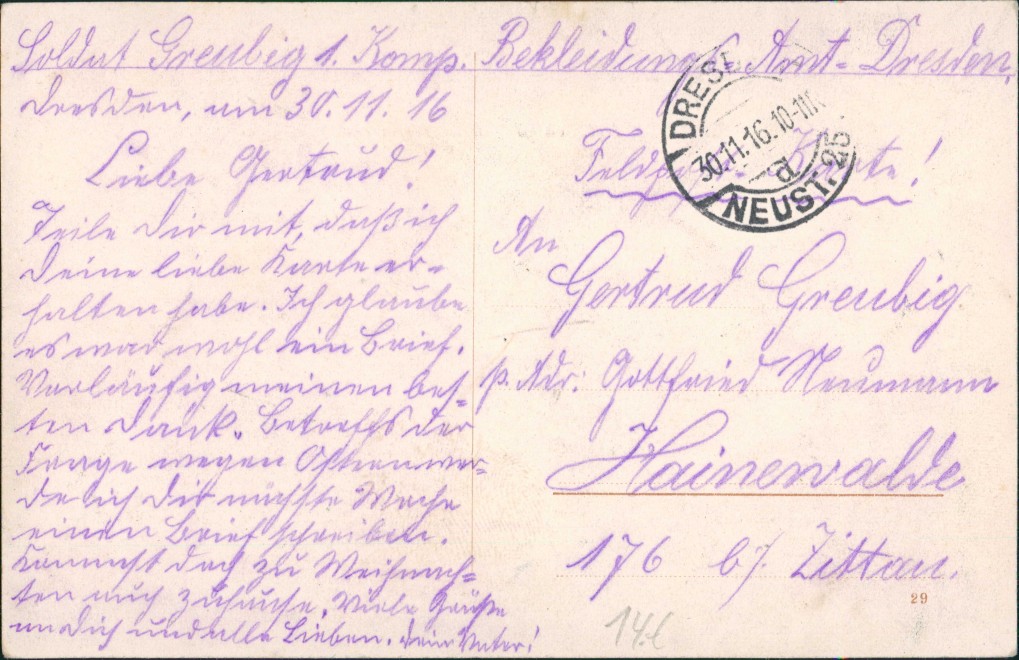 Soldat Greubig 1. Komp. Bekleidungs-Amt-Dresden.
Dresden, am 30.11.16
Liebe Gertrud!
Teile Dir mit, daß ich
Deine liebe Karte er-
halten habe. Ich glaube
es war wohl ein Brief.
Vorläufig meinen bes-
ten Dank. Betreffs der
Frage wegen Ostern wer-
de ich Dir nächste Woche
einen Brief schreiben.
Kommst doch zu Weihnach-
ten auch zuhause. Viele Grüße
an Dich und alle Lieben. Dein Vater!
Feldpost-Karte!
DRESDEN
30.11.16.10-11V
d
NEUST. 25
An
Gertrud Greubig
p. Adr: Gottfried Neumann
Hainewalde
176 b/ Zittau.
29
14.€